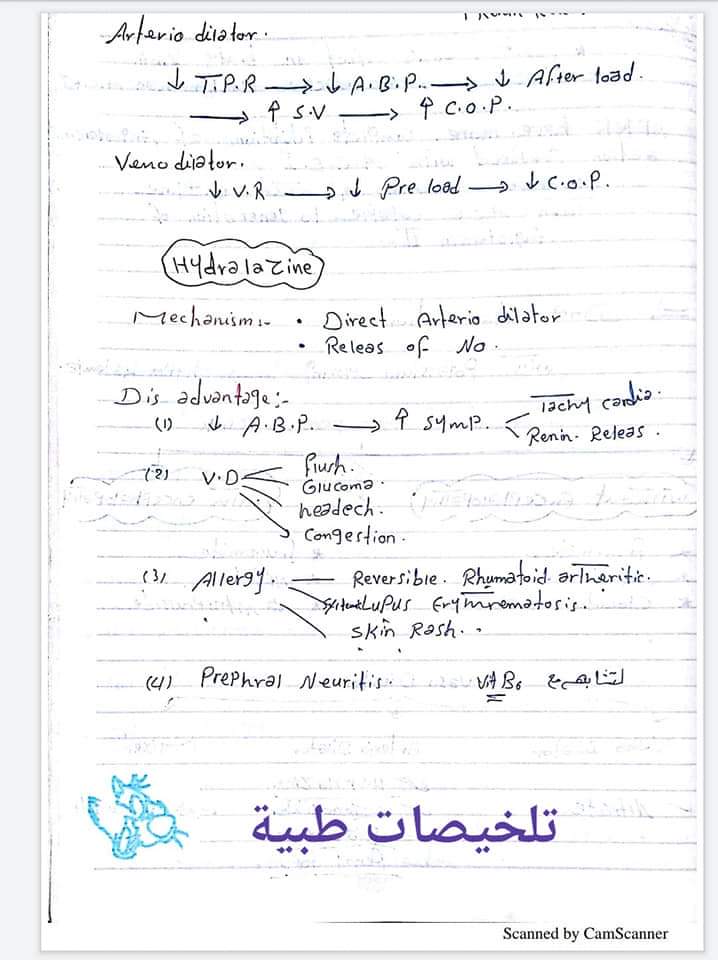 Arterio dilator.
↓ T.P.R → ↓ A.B.P. → ↓ After load.
→ ↑ S.V → ↑ C.O.P.
Veno dilator.
↓ V.R → ↓ Pre load → ↓ C.O.P.
Hydralazine
Mechanism:- • Direct Arterio dilator
• Releas of No.
Dis advantage:-
(1) ↓ A.B.P. → ↑ symp. Tachy cardia.
Renin. Releas.
(2) V.D flush.
Glucoma.
headech.
Congestion.
(3) Allergy. Reversible. Rhumatoid artheritic.
Lupus Erythrematosis.
Skin Rash.
(4) Prephral Neuritis. Vit B6
تلخيصات طبية
Scanned by CamScanner